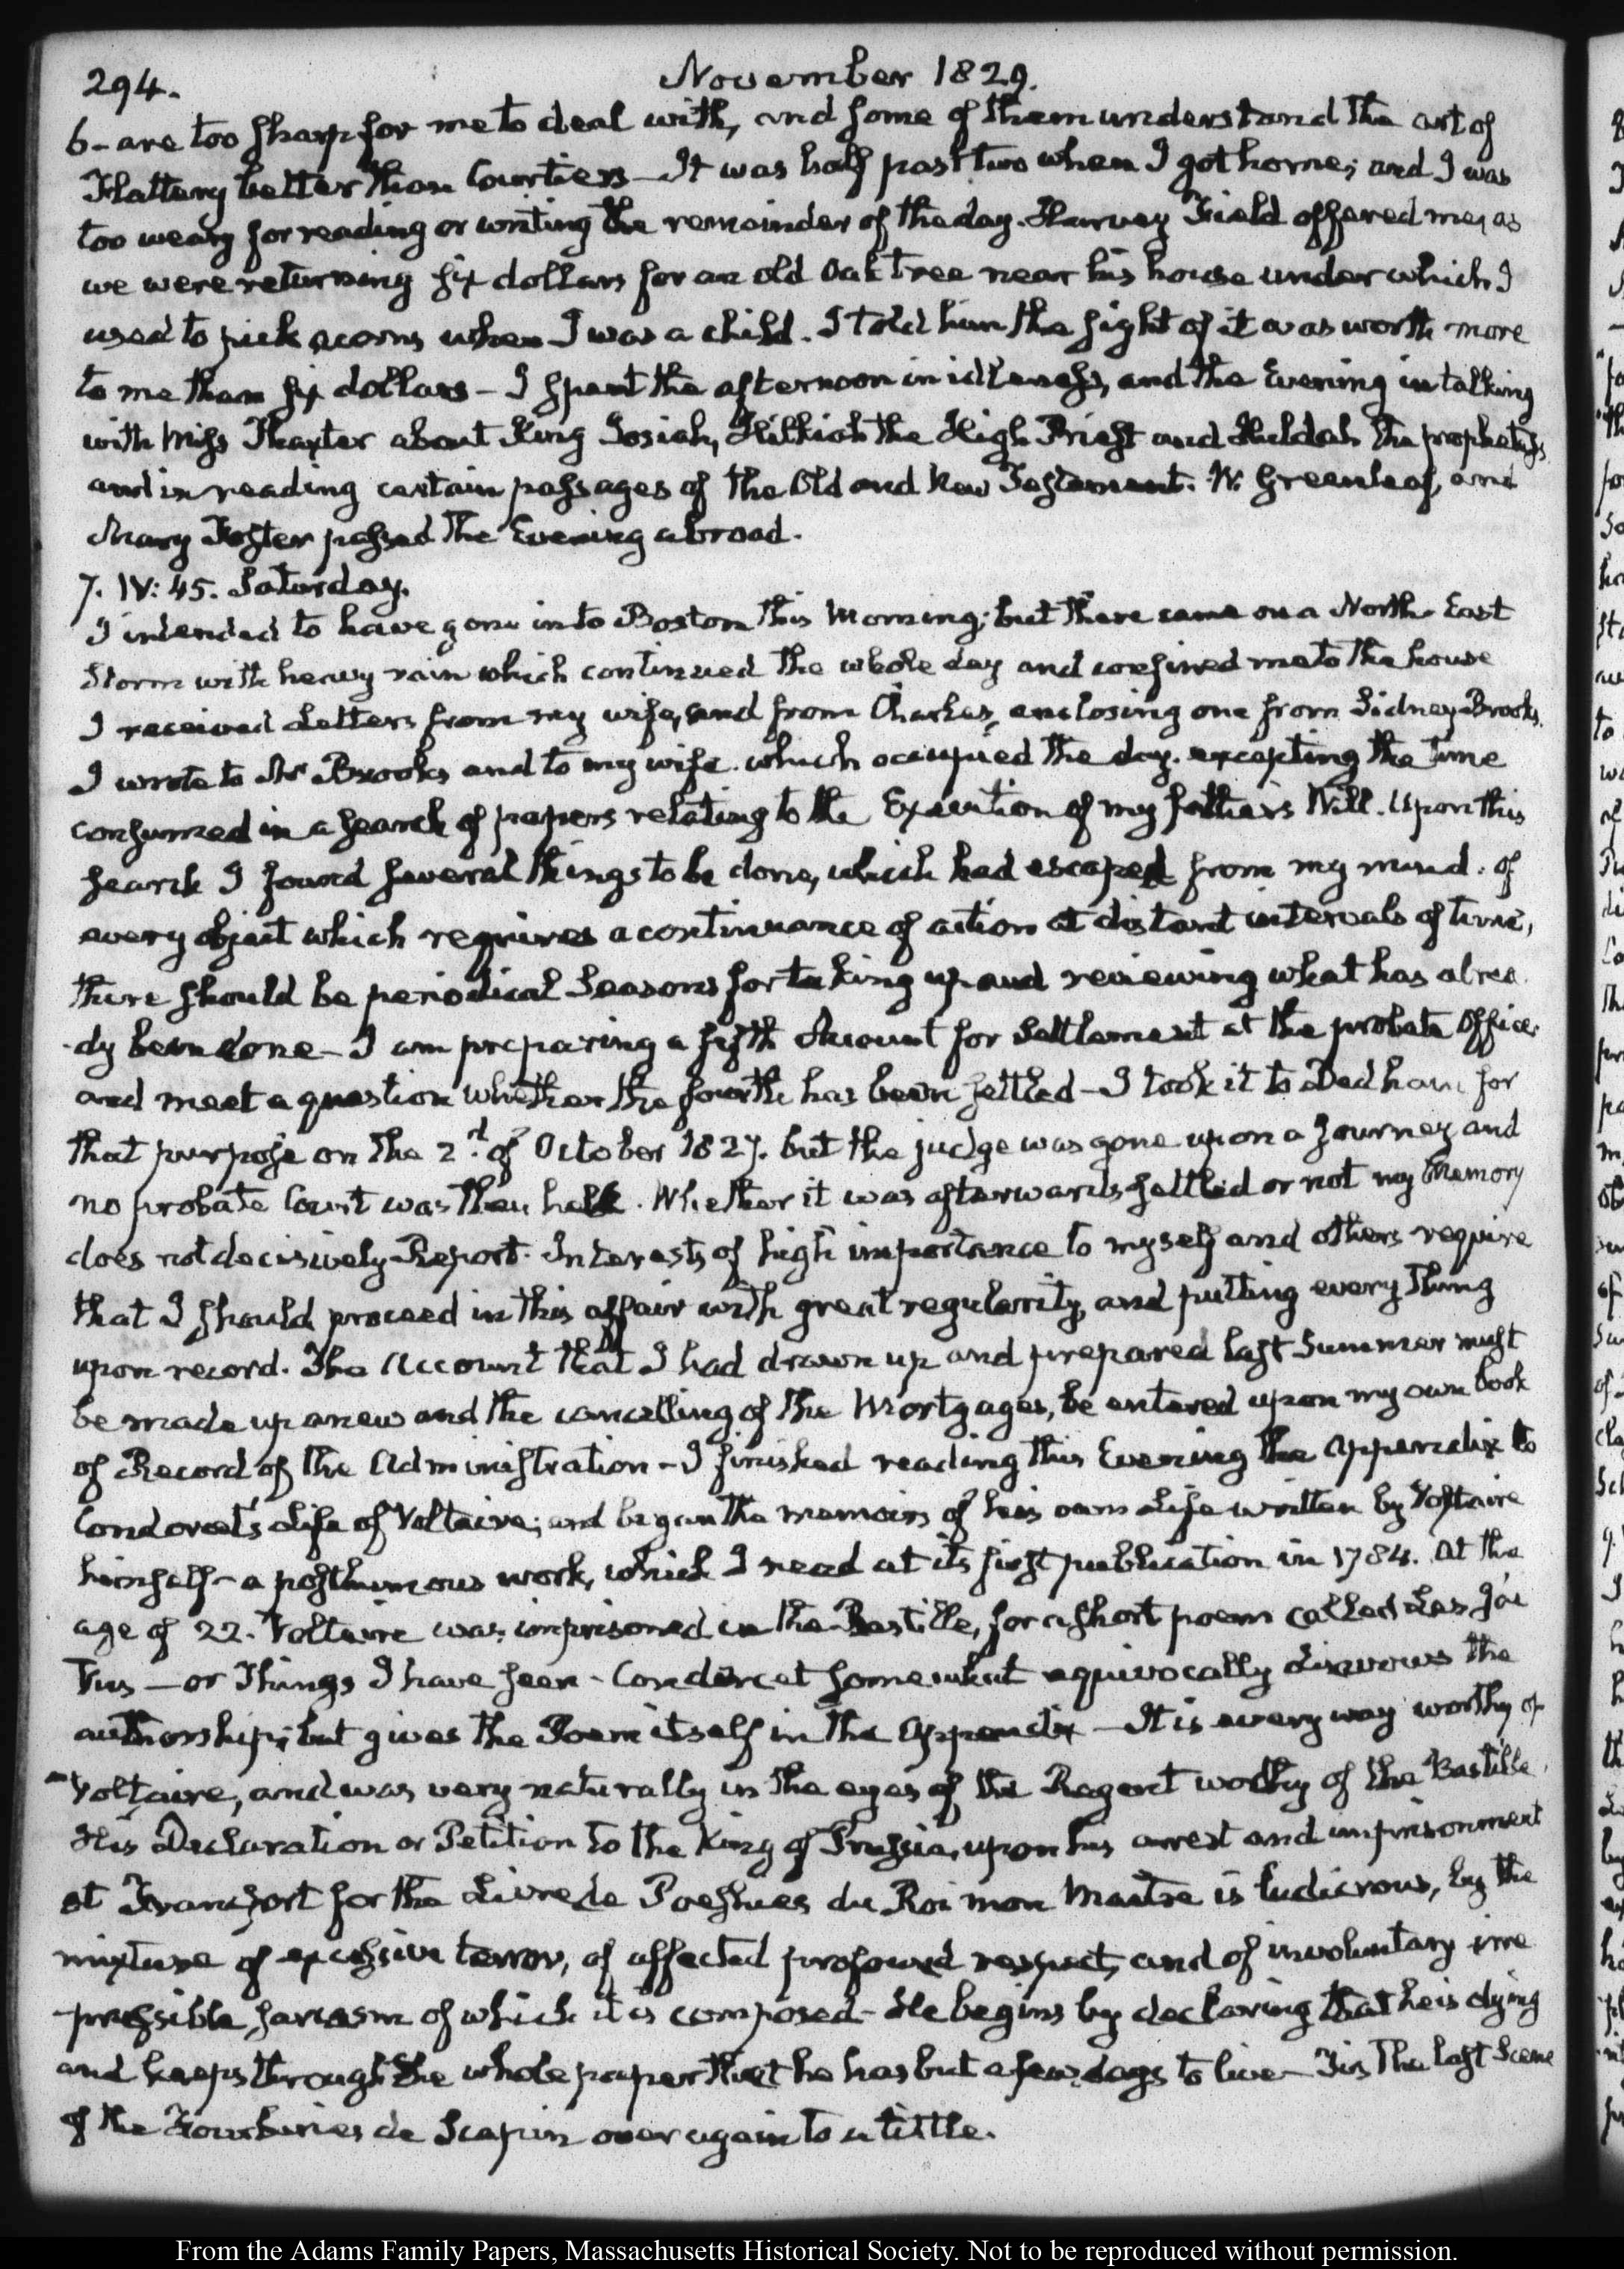 294.
November 1829.
6 - are too sharp for me to deal with, and some of them understand the art of
Flattery better than Courtiers - It was half past two when I got home; and I was
too weary for reading or writing the remainder of the day. Harvey Field offered me, as
we were returning six dollars for an old Oak tree near his house under which I
used to pick acorns when I was a child. I told him the sight of it was worth more
to me than six dollars - I spent the afternoon in idleness, and the Evening in talking
with Miss Thaxter about King Josiah, Hilkiah the High Priest and Huldah the prophetess
and in reading certain passages of the Old and New Testament. W. Greenleaf, and
Mary Foster passed the Evening abroad.
7. IV: 45. Saturday.
I intended to have gone into Boston this Morning; but there came on a North-East
Storm with heavy rain which continued the whole day and confined me to the house
I received Letters from my wife, and from Charles, enclosing one from Sidney Brooks.
I wrote to Mr Brooks and to my wife. which occupied the day. excepting the time
consumed in a search of papers relating to the Execution of my father's Will. Upon this
search I found several things to be done, which had escaped from my mind. of
every object which requires a continuance of action at distant intervals of time,
there should be periodical Seasons for taking up and reviewing what has alrea
-dy been done - I am preparing a fifth Account for Settlement at the probate Office.
and meet a question whether the fourth has been settled - I took it to Dedham for
that purpose on the 2.d of October 1827. but the judge was gone upon a Journey and
no probate Court was then held. Whether it was afterwards settled or not my Memory
does not decisively Report. Interests of high importance to myself and others require
that I should proceed in this affair with great regularity, and putting every Thing
upon record. The Account that I had drawn up and prepared last Summer must
be made up anew and the cancelling of the Mortgages, be entered upon my own book
of Record of the Administration - I finished reading this Evening the Appendix to
Condorcet's Life of Voltaire; and began the memoirs of his own Life written by Voltaire
himself - a posthumous work, which I read at its first publication in 1784. At the
age of 22. Voltaire was imprisoned in the Bastille, for a short poem called Les J'ai
Vus - or Things I have seen - Condorcet somewhat equivocally disavows the
authorship; but gives the Poem itself in the Appendix - It is every way worthy of
Voltaire, and was very naturally in the eyes of the Regent worthy of the Bastille.
His Declaration or Petition to the King of Prussia, upon his arrest and imprisonment
at Francfort for the Livre de Poeshies du Roi mon Maitre is ludicrous, by the
mixture of excessive terror, of affected profound respect, and of involuntary irre
-pressible sarcasm of which it is composed - He begins by declaring that he is dying
and keeps through the whole paper that he has but a few days to live - Tis the last Scene
of the Fourberies de Scapin over again to a tittle.
From the Adams Family Papers, Massachusetts Historical Society. Not to be reproduced without permission.